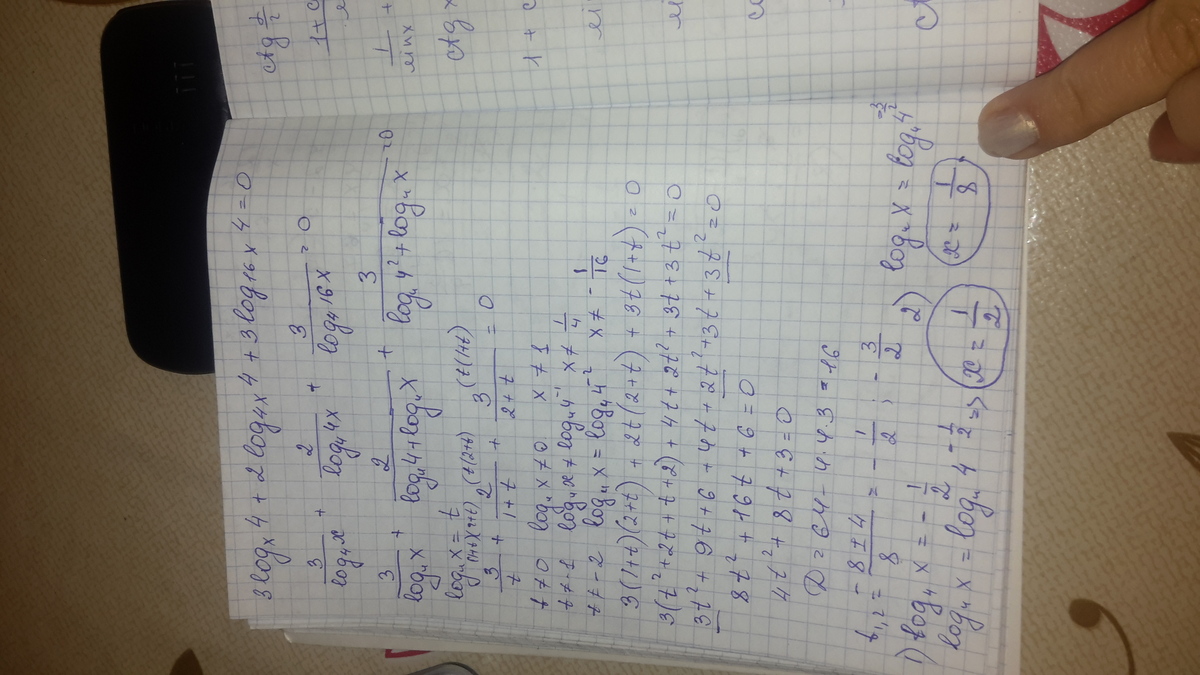 3logₓ4 + 2log₄ₓ4 + 3log₁₆ₓ4 = 0
3/log₄x + 2/log₄4x + 3/log₄16x = 0
3/log₄x + 2/(log₄4+log₄x) + 3/(log₄4²+log₄x) = 0
log₄x = t
3/t + 2/(1+t) + 3/(2+t) = 0
t ≠ 0 log₄x ≠ 0 x ≠ 1
t ≠ -1 log₄x ≠ log₄4⁻¹ x ≠ 1/4
t ≠ -2 log₄x = log₄4⁻² x ≠ - 1/16
3(1+t)(2+t) + 2t(2+t) + 3t(1+t) = 0
3(t²+2t+t+2) + 4t + 2t² + 3t + 3t² = 0
3t² + 9t + 6 + 4t + 2t² + 3t + 3t² = 0
8t² + 16t + 6 = 0
4t² + 8t + 3 = 0
D = 64 - 4·4·3 = 16
t₁,₂ = (-8±4)/8 = - 1/2 ; - 3/2
1) log₄x = - 1/2
log₄x = log₄4^(-1/2) => x = 1/2
2) log₄x = log₄4^(-3/2)
x = 1/8
1/sinx +
ctg x
1 + c